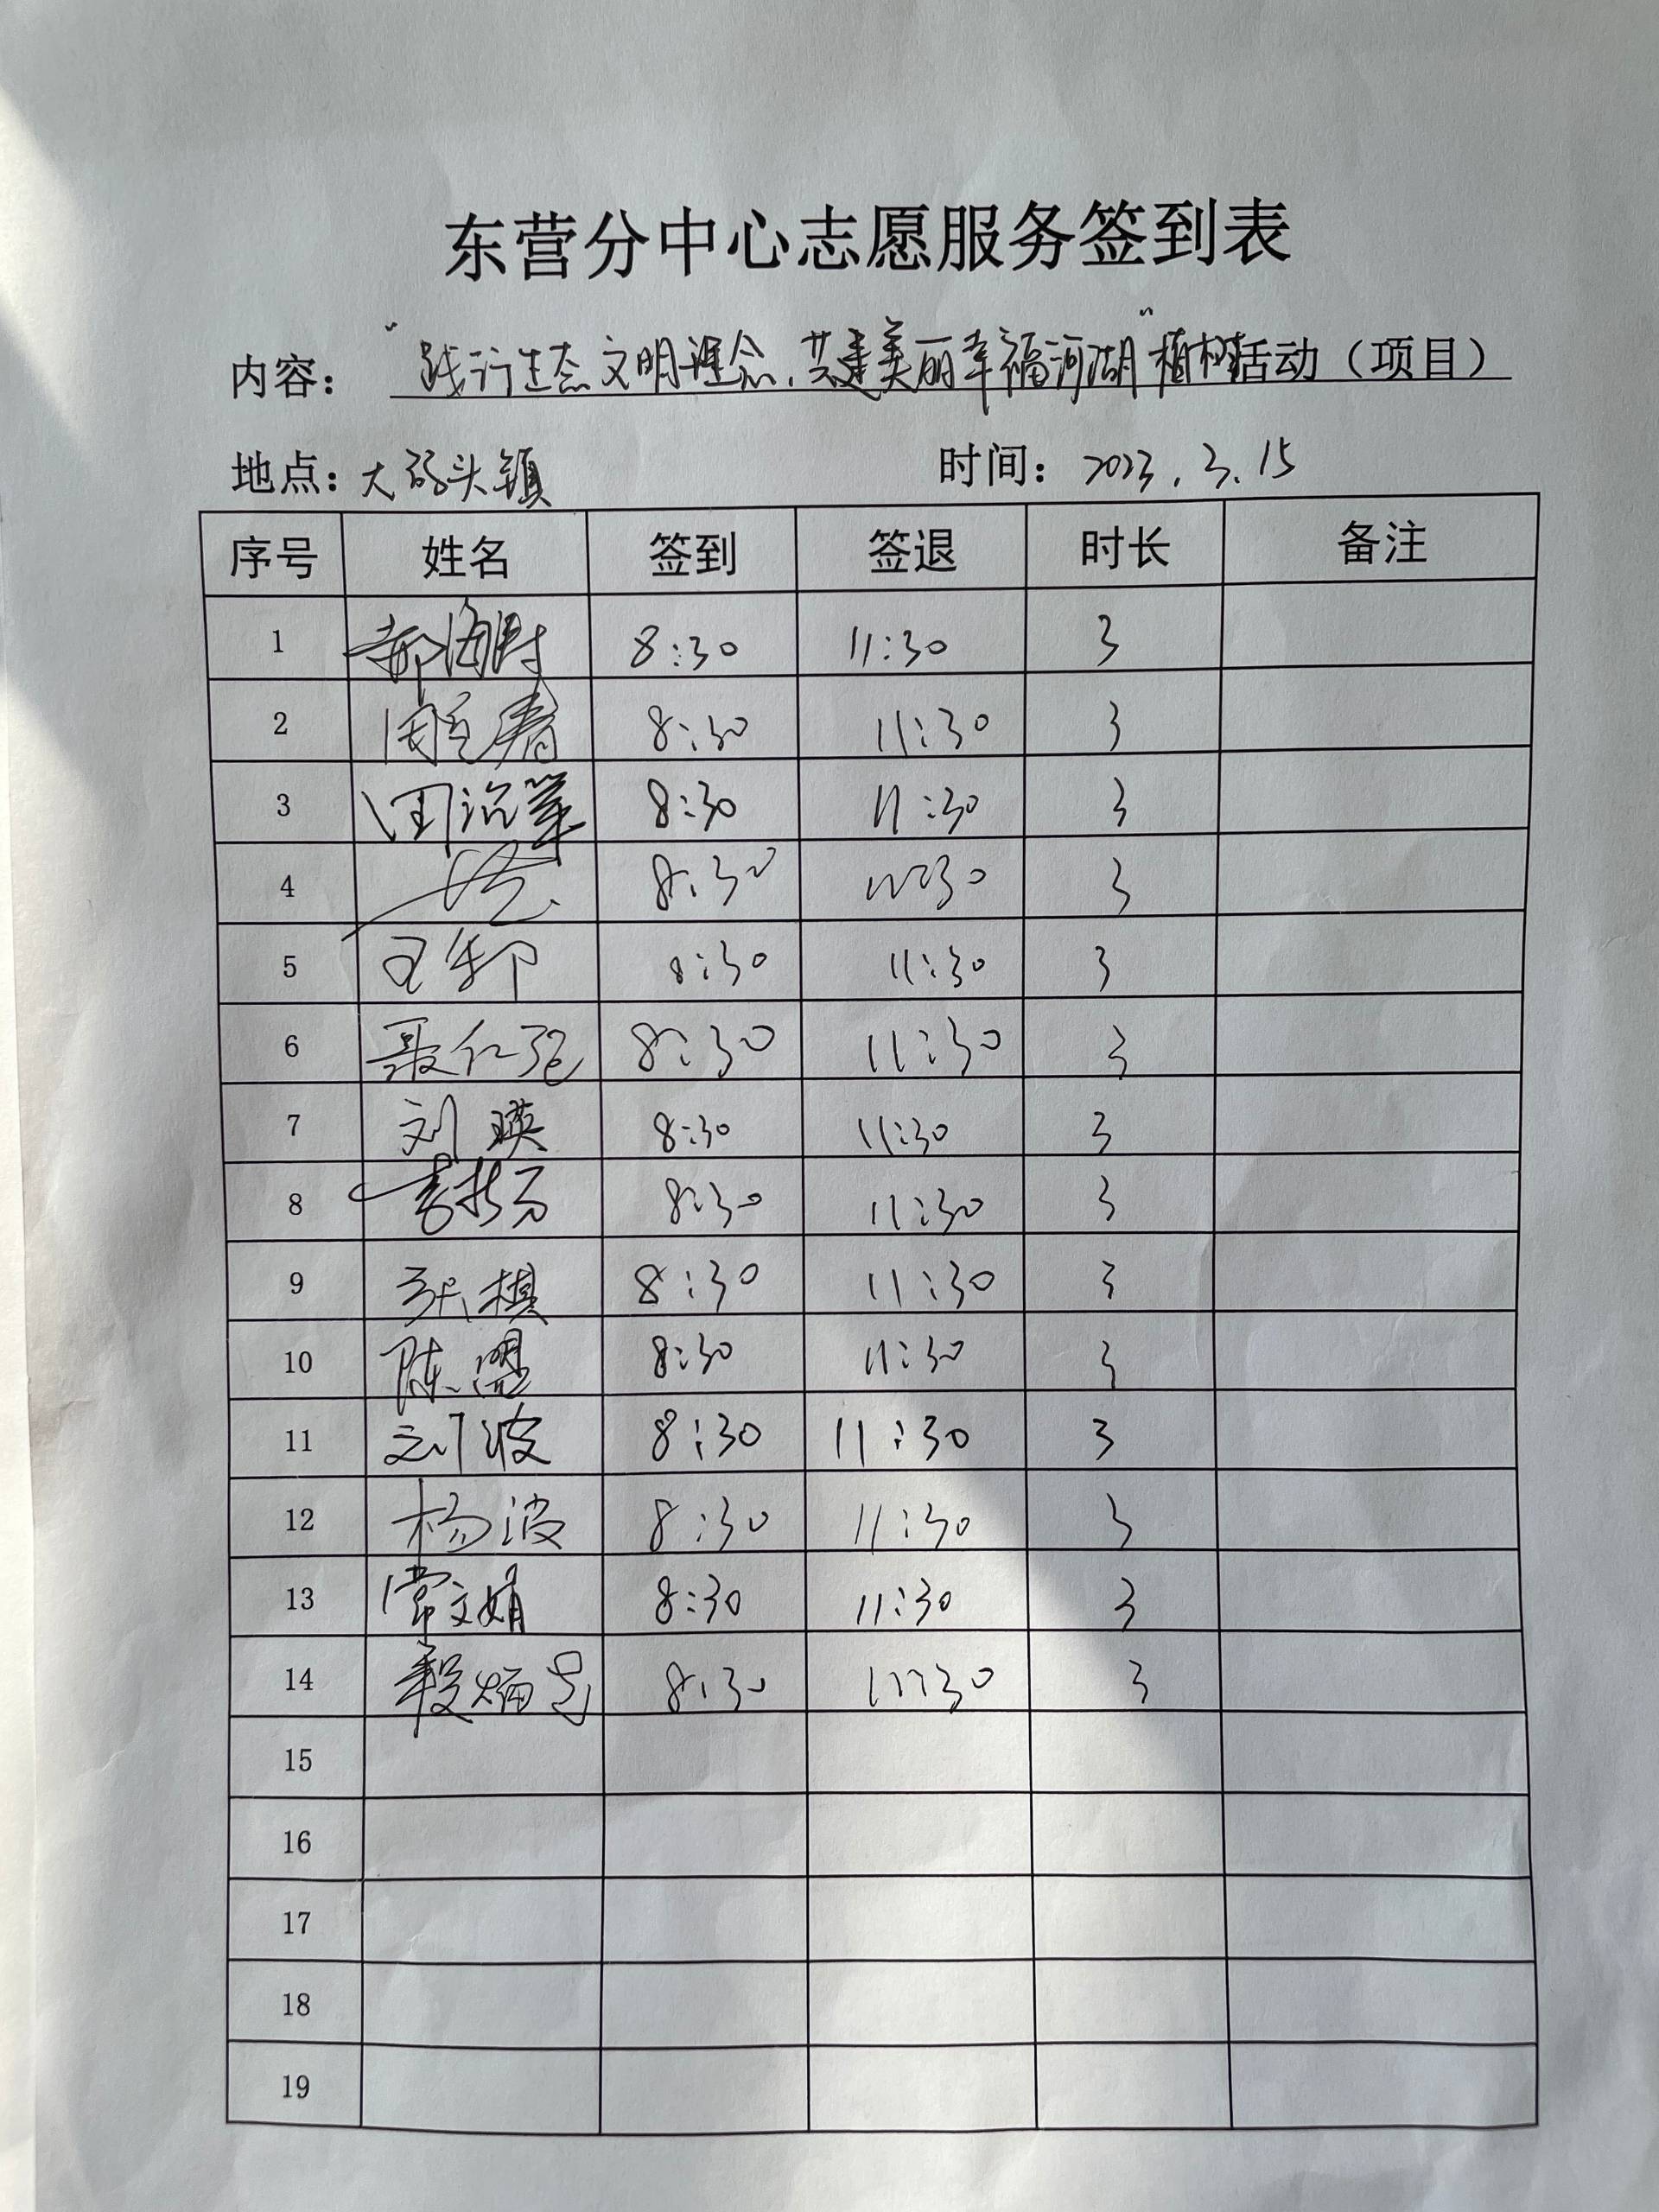 东营分中心志愿服务签到表
内容: "践行生态文明理念,共建美丽幸福河湖"植树活动(项目)
地点:大码头镇 时间: 2023.3.15
序号 姓名 签到 签退 时长 备注
1 8:30 11:30 3
2 8:30 11:30 3
3 8:30 11:30 3
4 8:30 11:30 3
5 8:30 11:30 3
6 8:30 11:30 3
7 刘瑛 8:30 11:30 3
8 8:30 11:30 3
9 张棋 8:30 11:30 3
10 陈盟 8:30 11:30 3
11 刘波 8:30 11:30 3
12 杨波 8:30 11:30 3
13 常文娟 8:30 11:30 3
14 8:30 11:30 3
15
16
17
18
19